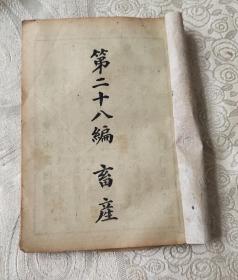 第二十八編 畜産